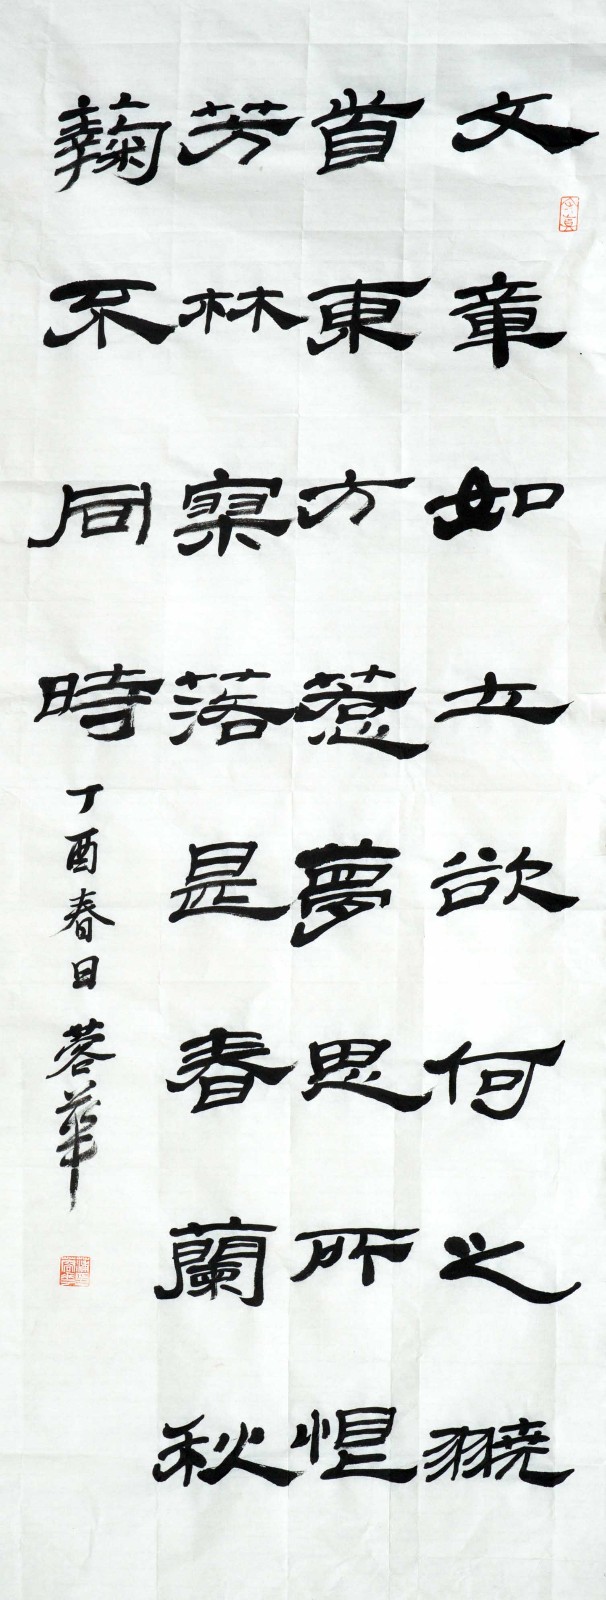 文章如土欲何之翹
首東方惹夢思所恨
芳林寥落甚春蘭秋
鞠不同時
丁酉春日蓉華